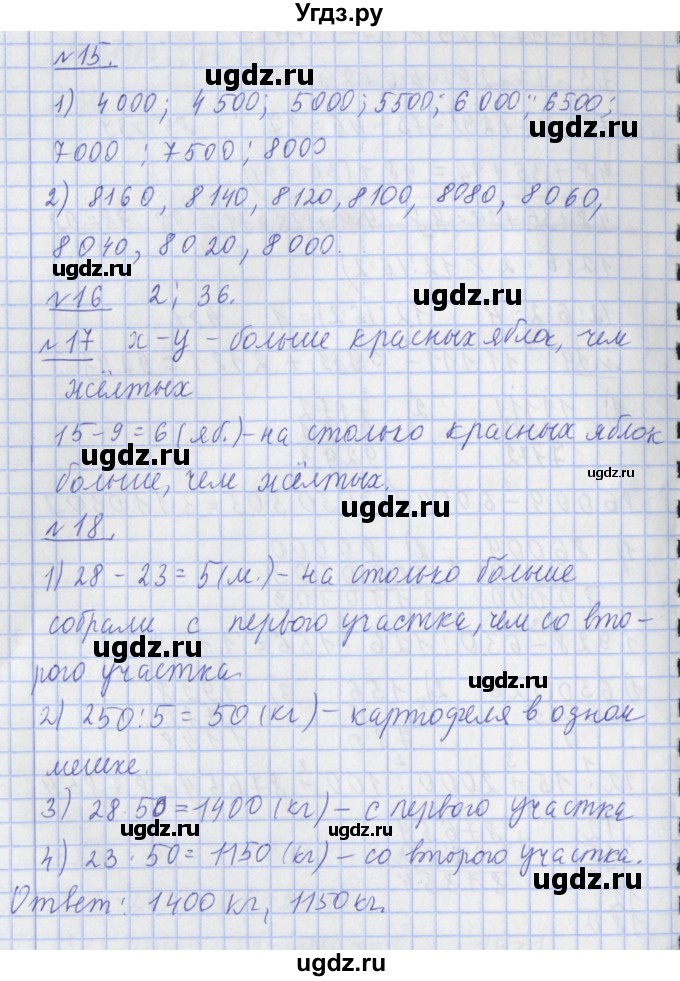 Угдз.ру
№15.
ugdz.ru
1) 4000; 4500; 5000; 5500; 6000; 6500;
ugdz.ru
7000 ; 7500; 8000
2) 8160, 8140, 8120, 8100, 8080, 8060,
8040, 8020, 8000.
ugdz.ru
№16 2; 36.
ugdz.ru
№17 х-у - больше красных яблок, чем
жёлтых
15-9=6 (яб.)-на столько красных яблок
ugdz.ru
больше, чем жёлтых.
ugdz.ru
ugdz.ru
№18.
1) 28-23=5(м.)-на столько больше
собрали с первого участка, чем со вто-
ugdz.ru
рого участка.
ugdz.ru
2) 250:5=50(кг)-картофеля в одном
мешке.
3) 28·50=1400(кг)-с первого участка
ugdz.ru ugdz.ru
4) 23·50=1150(кг)-со второго участка.
ugdz.ru
Ответ: 1400кг, 1150кг.
ugdz.ru